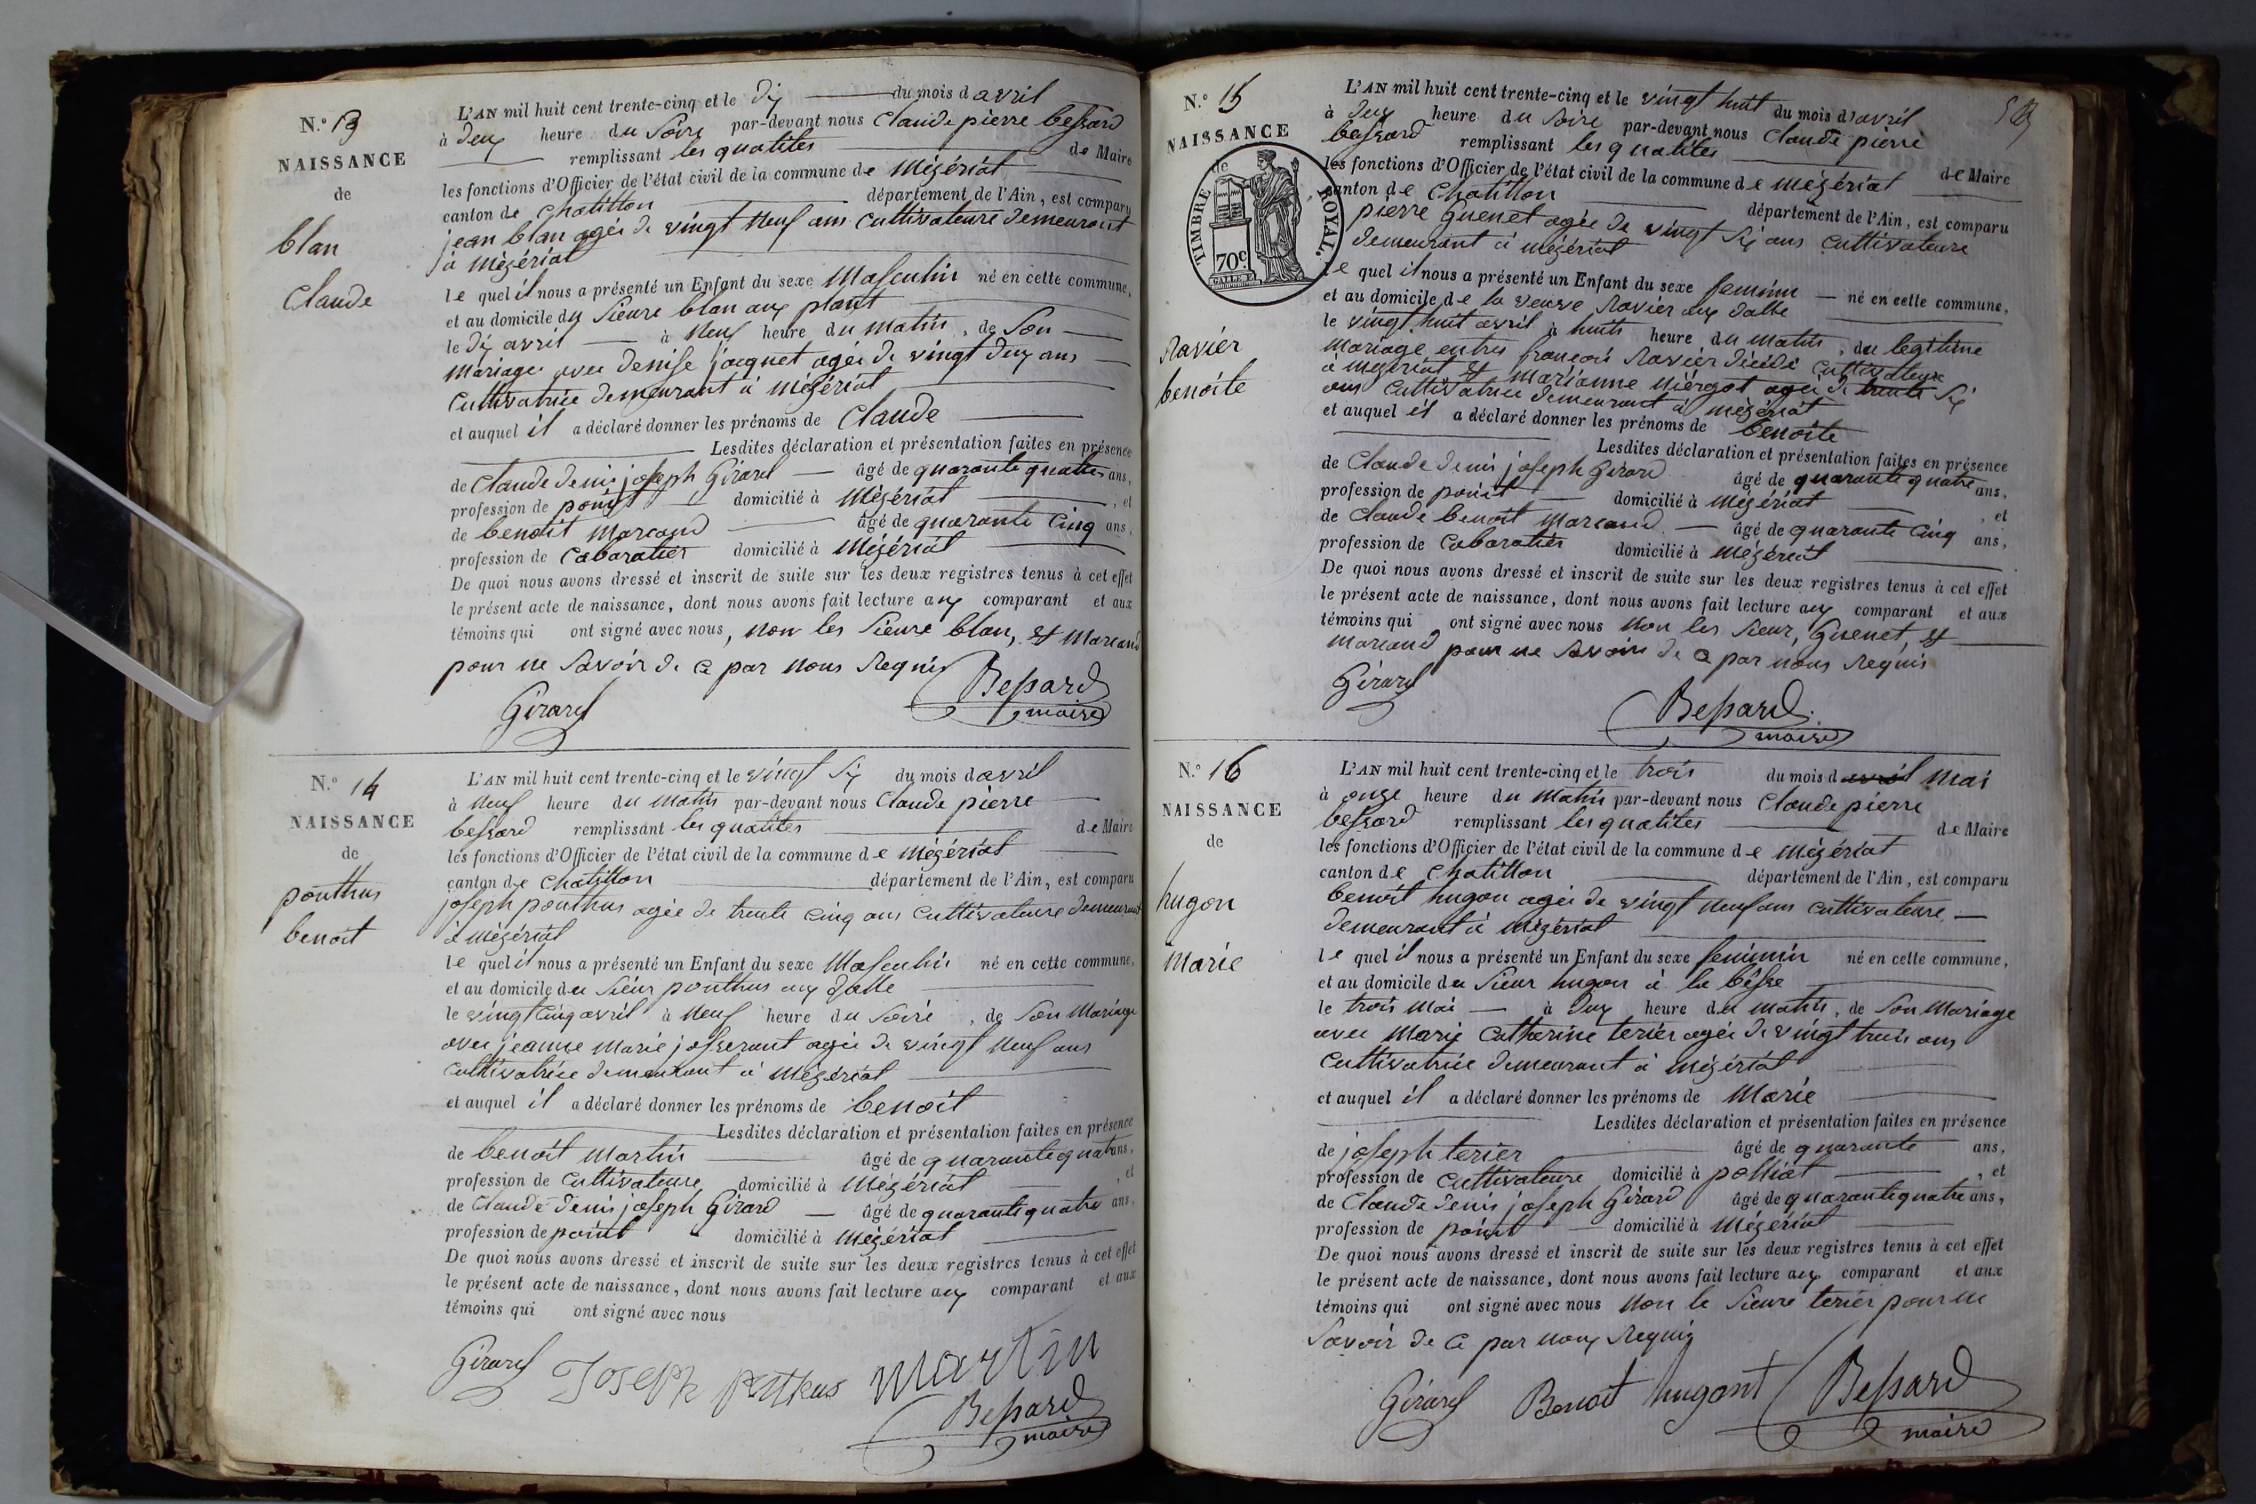 N.° 13
NAISSANCE
de
blan
Claude
L'AN mil huit cent trente-cinq et le dix du mois d avril
à deux heure du Soire par-devant nous Claude pierre bessard
remplissant les qualités de Maire
les fonctions d'Officier de l'état civil de la commune de Mézériat
canton de Chatillon département de l'Ain, est comparu
jean blan agée de vingt neuf ans Cultivateure demeurant
à Mézériat
le quel il nous a présenté un Enfant du sexe Masculin né en cette commune,
et au domicile du Sieure blan aux plant
le dix avril à neuf heure du matin, de Son
Mariage avec denise jacquet agée de vingt deux ans
Cultivatrice demeurant à Mézériat
et auquel il a déclaré donner les prénoms de Claude
Lesdites déclaration et présentation faites en présence
de Claude denis joseph Girard âgé de quarante quatre ans,
profession de domicilié à Mézériat, et
de benoit Marcand âgé de quarante Cinq ans,
profession de Cabaratier domicilié à Mézériat
De quoi nous avons dressé et inscrit de suite sur les deux registres tenus à cet effet
le présent acte de naissance, dont nous avons fait lecture aux comparant et aux
témoins qui ont signé avec nous, non les Sieure blan, et Marcand
pour ne Savoir de ce par nous Requis
Girard Bessard
maire
N.° 14
NAISSANCE
de
ponthus
benoit
L'AN mil huit cent trente-cinq et le vingt Six du mois d avril
à neuf heure du Matin par-devant nous Claude pierre
bessard remplissant les qualités de Maire
les fonctions d'Officier de l'état civil de la commune de Mézériat
canton de Chatillon département de l'Ain, est comparu
joseph ponthus agée de trente Cinq ans Cultivateure demeurant
à Mézériat
le quel il nous a présenté un Enfant du sexe Masculin né en cette commune,
et au domicile du Sieur ponthus aux
le vingt Cinq avril à neuf heure du Soire, de Son Mariage
avec jeanne Marie josserant agée de vingt neuf ans
Cultivatrice demeurant à Mézériat
et auquel il a déclaré donner les prénoms de benoit
Lesdites déclaration et présentation faites en présence
de benoit Martin âgé de quarante quatre ans,
profession de Cultivateure domicilié à Mézériat, et
de Claude denis joseph Girard âgé de quarante quatre ans,
profession de domicilié à Mézériat
De quoi nous avons dressé et inscrit de suite sur les deux registres tenus à cet effet
le présent acte de naissance, dont nous avons fait lecture aux comparant et aux
témoins qui ont signé avec nous
Girard Joseph Martin
Bessard
maire
N.° 15
NAISSANCE
de
TIMBRE ROYAL.
70c
Ravier
benoite
L'AN mil huit cent trente-cinq et le vingt huit du mois d'avril
à deux heure du Soire par-devant nous Claude pierre
bessard remplissant les qualités de Maire
les fonctions d'Officier de l'état civil de la commune de Mézériat
canton de Chatillon département de l'Ain, est comparu
pierre Guenet agée de vingt Six ans Cultivateure
demeurant à Mézériat
le quel il nous a présenté un Enfant du sexe feminin né en cette commune,
et au domicile de la veuve Ravier aux
le vingt huit avril à huit heure du matin, du legitime
Mariage entres françois Ravier décédé Cultivateure
à Mézériat et Marianne agée de trente Six
ans Cultivatrice demeurant à Mézériat
et auquel il a déclaré donner les prénoms de benoite
Lesdites déclaration et présentation faites en présence
de Claude denis joseph Girard âgé de quarante quatre ans,
profession de domicilié à Mézériat, et
de Claude benoit Marcand âgé de quarante Cinq ans,
profession de Cabaratier domicilié à Mézériat
De quoi nous avons dressé et inscrit de suite sur les deux registres tenus à cet effet
le présent acte de naissance, dont nous avons fait lecture aux comparant et aux
témoins qui ont signé avec nous non les Sieur, Guenet, et
Marcand pour ne Savoir de ce par nous Requis
Girard
Bessard
maire
N.° 16
NAISSANCE
de
hugon
Marie
L'AN mil huit cent trente-cinq et le trois du mois d avril Mai
à onze heure du Matin par-devant nous Claude pierre
bessard remplissant les qualités de Maire
les fonctions d'Officier de l'état civil de la commune de Mézériat
canton de Chatillon département de l'Ain, est comparu
benoit hugon agée de vingt neuf ans Cultivateure
demeurant à Mézériat
le quel il nous a présenté un Enfant du sexe feminin né en cette commune,
et au domicile du Sieur hugon à la
le trois Mai à deux heure du matin, de Son Mariage
avec Marie Catherine terier agée de vingt trois ans
Cultivatrice demeurant à Mézériat
et auquel il a déclaré donner les prénoms de Marie
Lesdites déclaration et présentation faites en présence
de joseph terier âgé de quarante ans,
profession de Cultivateure domicilié à polliat, et
de Claude denis joseph Girard âgé de quarante quatre ans,
profession de domicilié à Mézériat
De quoi nous avons dressé et inscrit de suite sur les deux registres tenus à cet effet
le présent acte de naissance, dont nous avons fait lecture aux comparant et aux
témoins qui ont signé avec nous non le Sieure terier pour ne
Savoir de ce par nous Requis
Girard Benoit hugont Bessard
maire